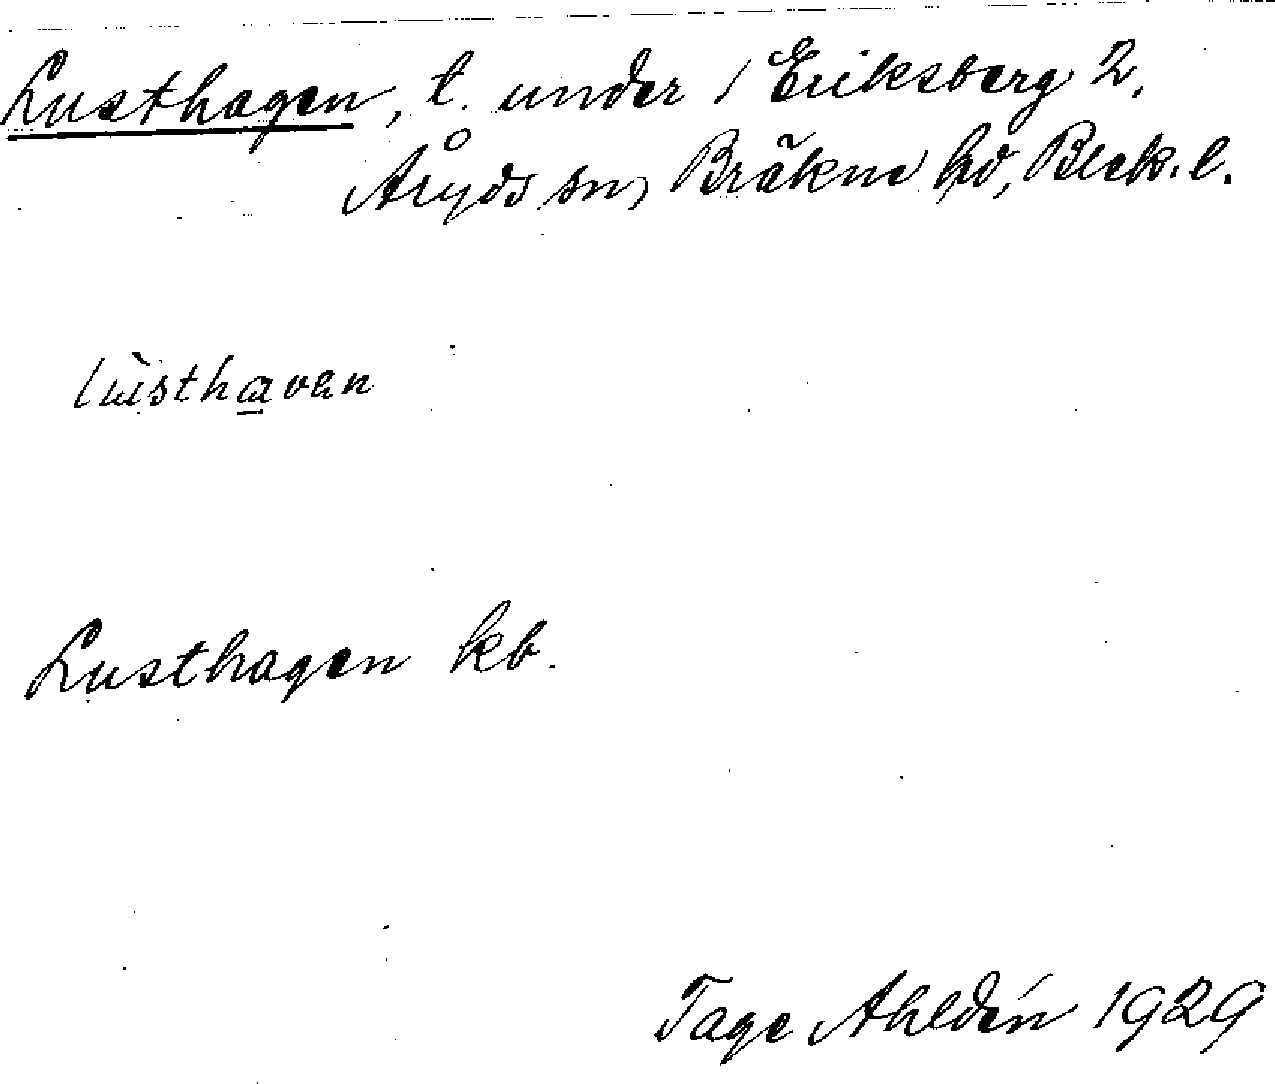 Lusthagen, t. under / Eriksberg 2,
Åryds sn, Bräkne hd, Blek. l.
lùsthavan
Lusthagen kb.
Tage Ahldén 1929